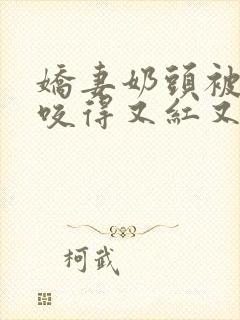 嬌妻奶頭被
咬得又紅又
柯武